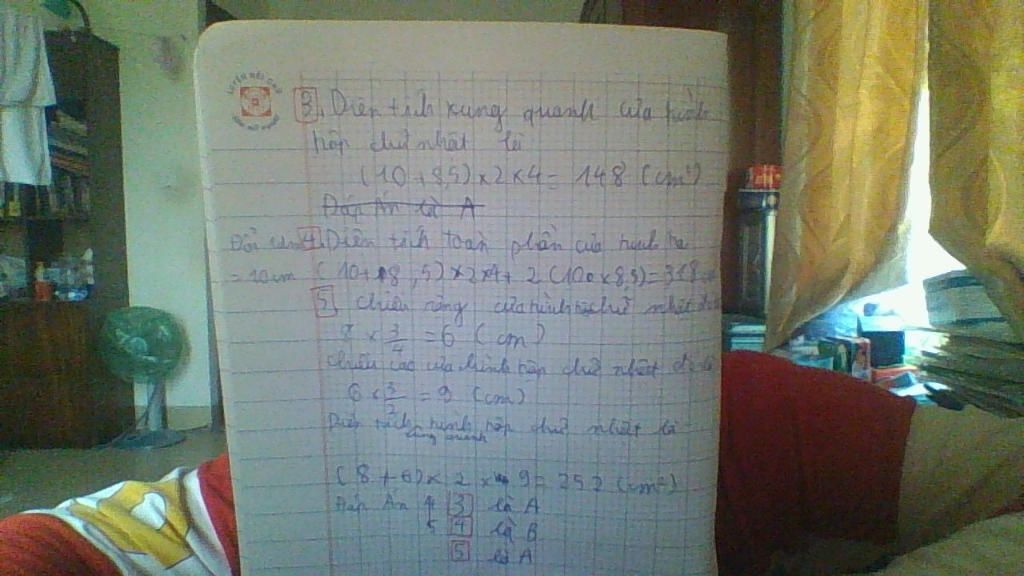 3. Diện tích xung quanh của hình
hộp chữ nhật là
(10 + 8,5) x 2 x 4 = 148 (cm²)
Đáp Án là A
4. Diện tích toàn phần của hình
= 10cm (10 + 8,5) x 2 x 4 + 2 (10 x 8,5) = 318
5 Chiều rộng của hình hộp chữ nhật
8 x 3/4 = 6 (cm)
chiều cao của hình hộp chữ nhật đó là
6 x 3/2 = 9 (cm)
Diện tích xung quanh hình hộp chữ nhật là
(8 + 6) x 2 x 9 = 252 (cm²)
Đáp Án 3 là A
4 là B
5 là A